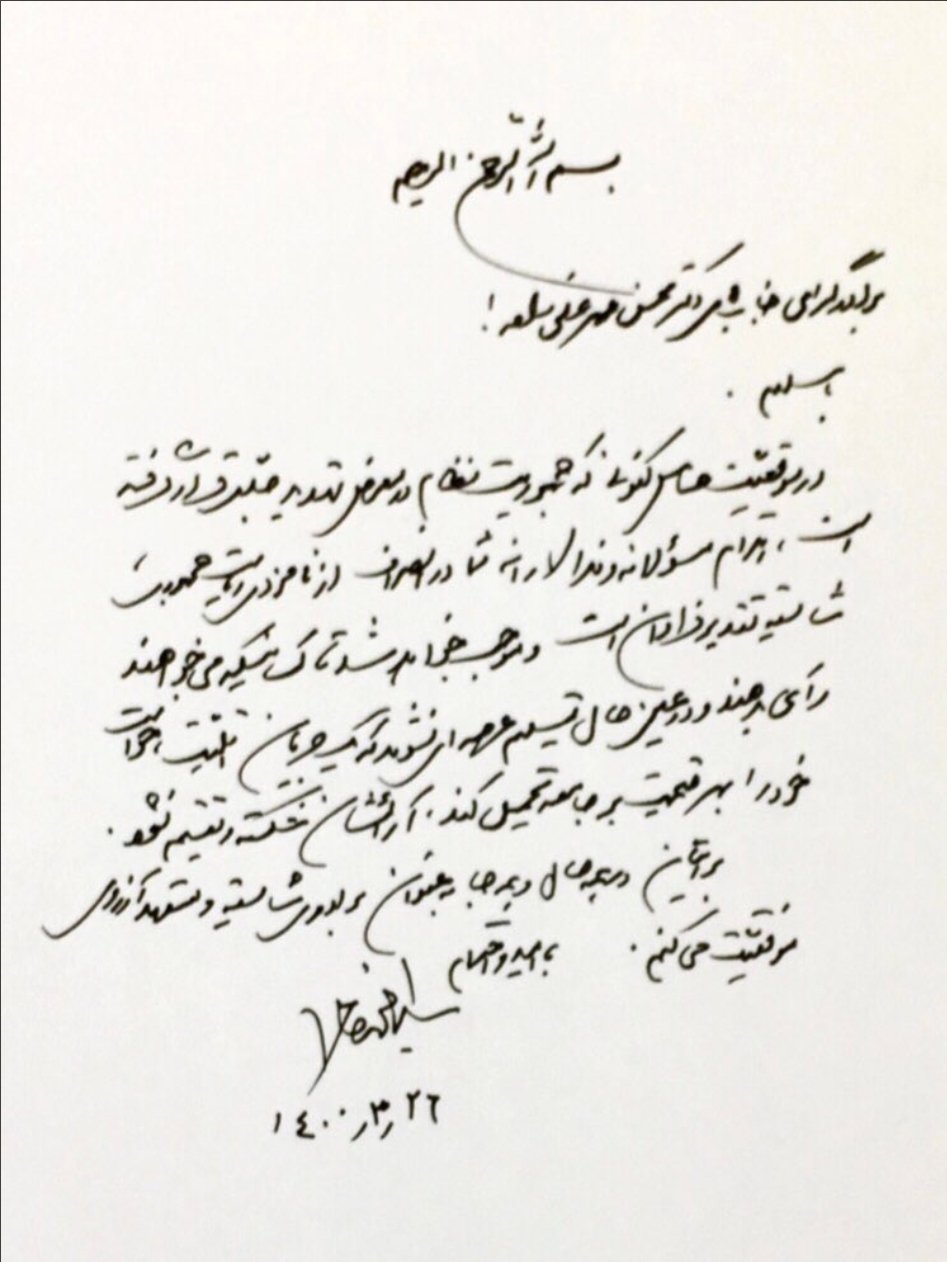 بسم الله الرحمن الرحیم
برادر گرامی جناب آقای دکتر محسن مهرعلیزاده!
با سلام.
در موقعیت حساس کنونی که جمهوریت نظام در معرض تهدید جدی قرار گرفته
است، اقدام مسؤلانه و فداکارانه شما در انصراف از نامزدی ریاست جمهوری
شایسته تقدیر فراوان است و موجب خواهد شد تا کسانیکه می‌خواهند
رأی بدهند و در عین حال تسلیم عرصه‌ای نشوند که یک جریان اقلیت
خود را بهر قیمت بر جامعه تحمیل کند. آرائشان شکسته و تقسیم نشود.
برایتان در همه حال و همه جا به عنوان برادری شایسته و متعهد آرزوی
موفقیت می‌کنم.
با امید و احترام
سید محمد خاتمی
۱۴۰۰ر۳ر۲۶